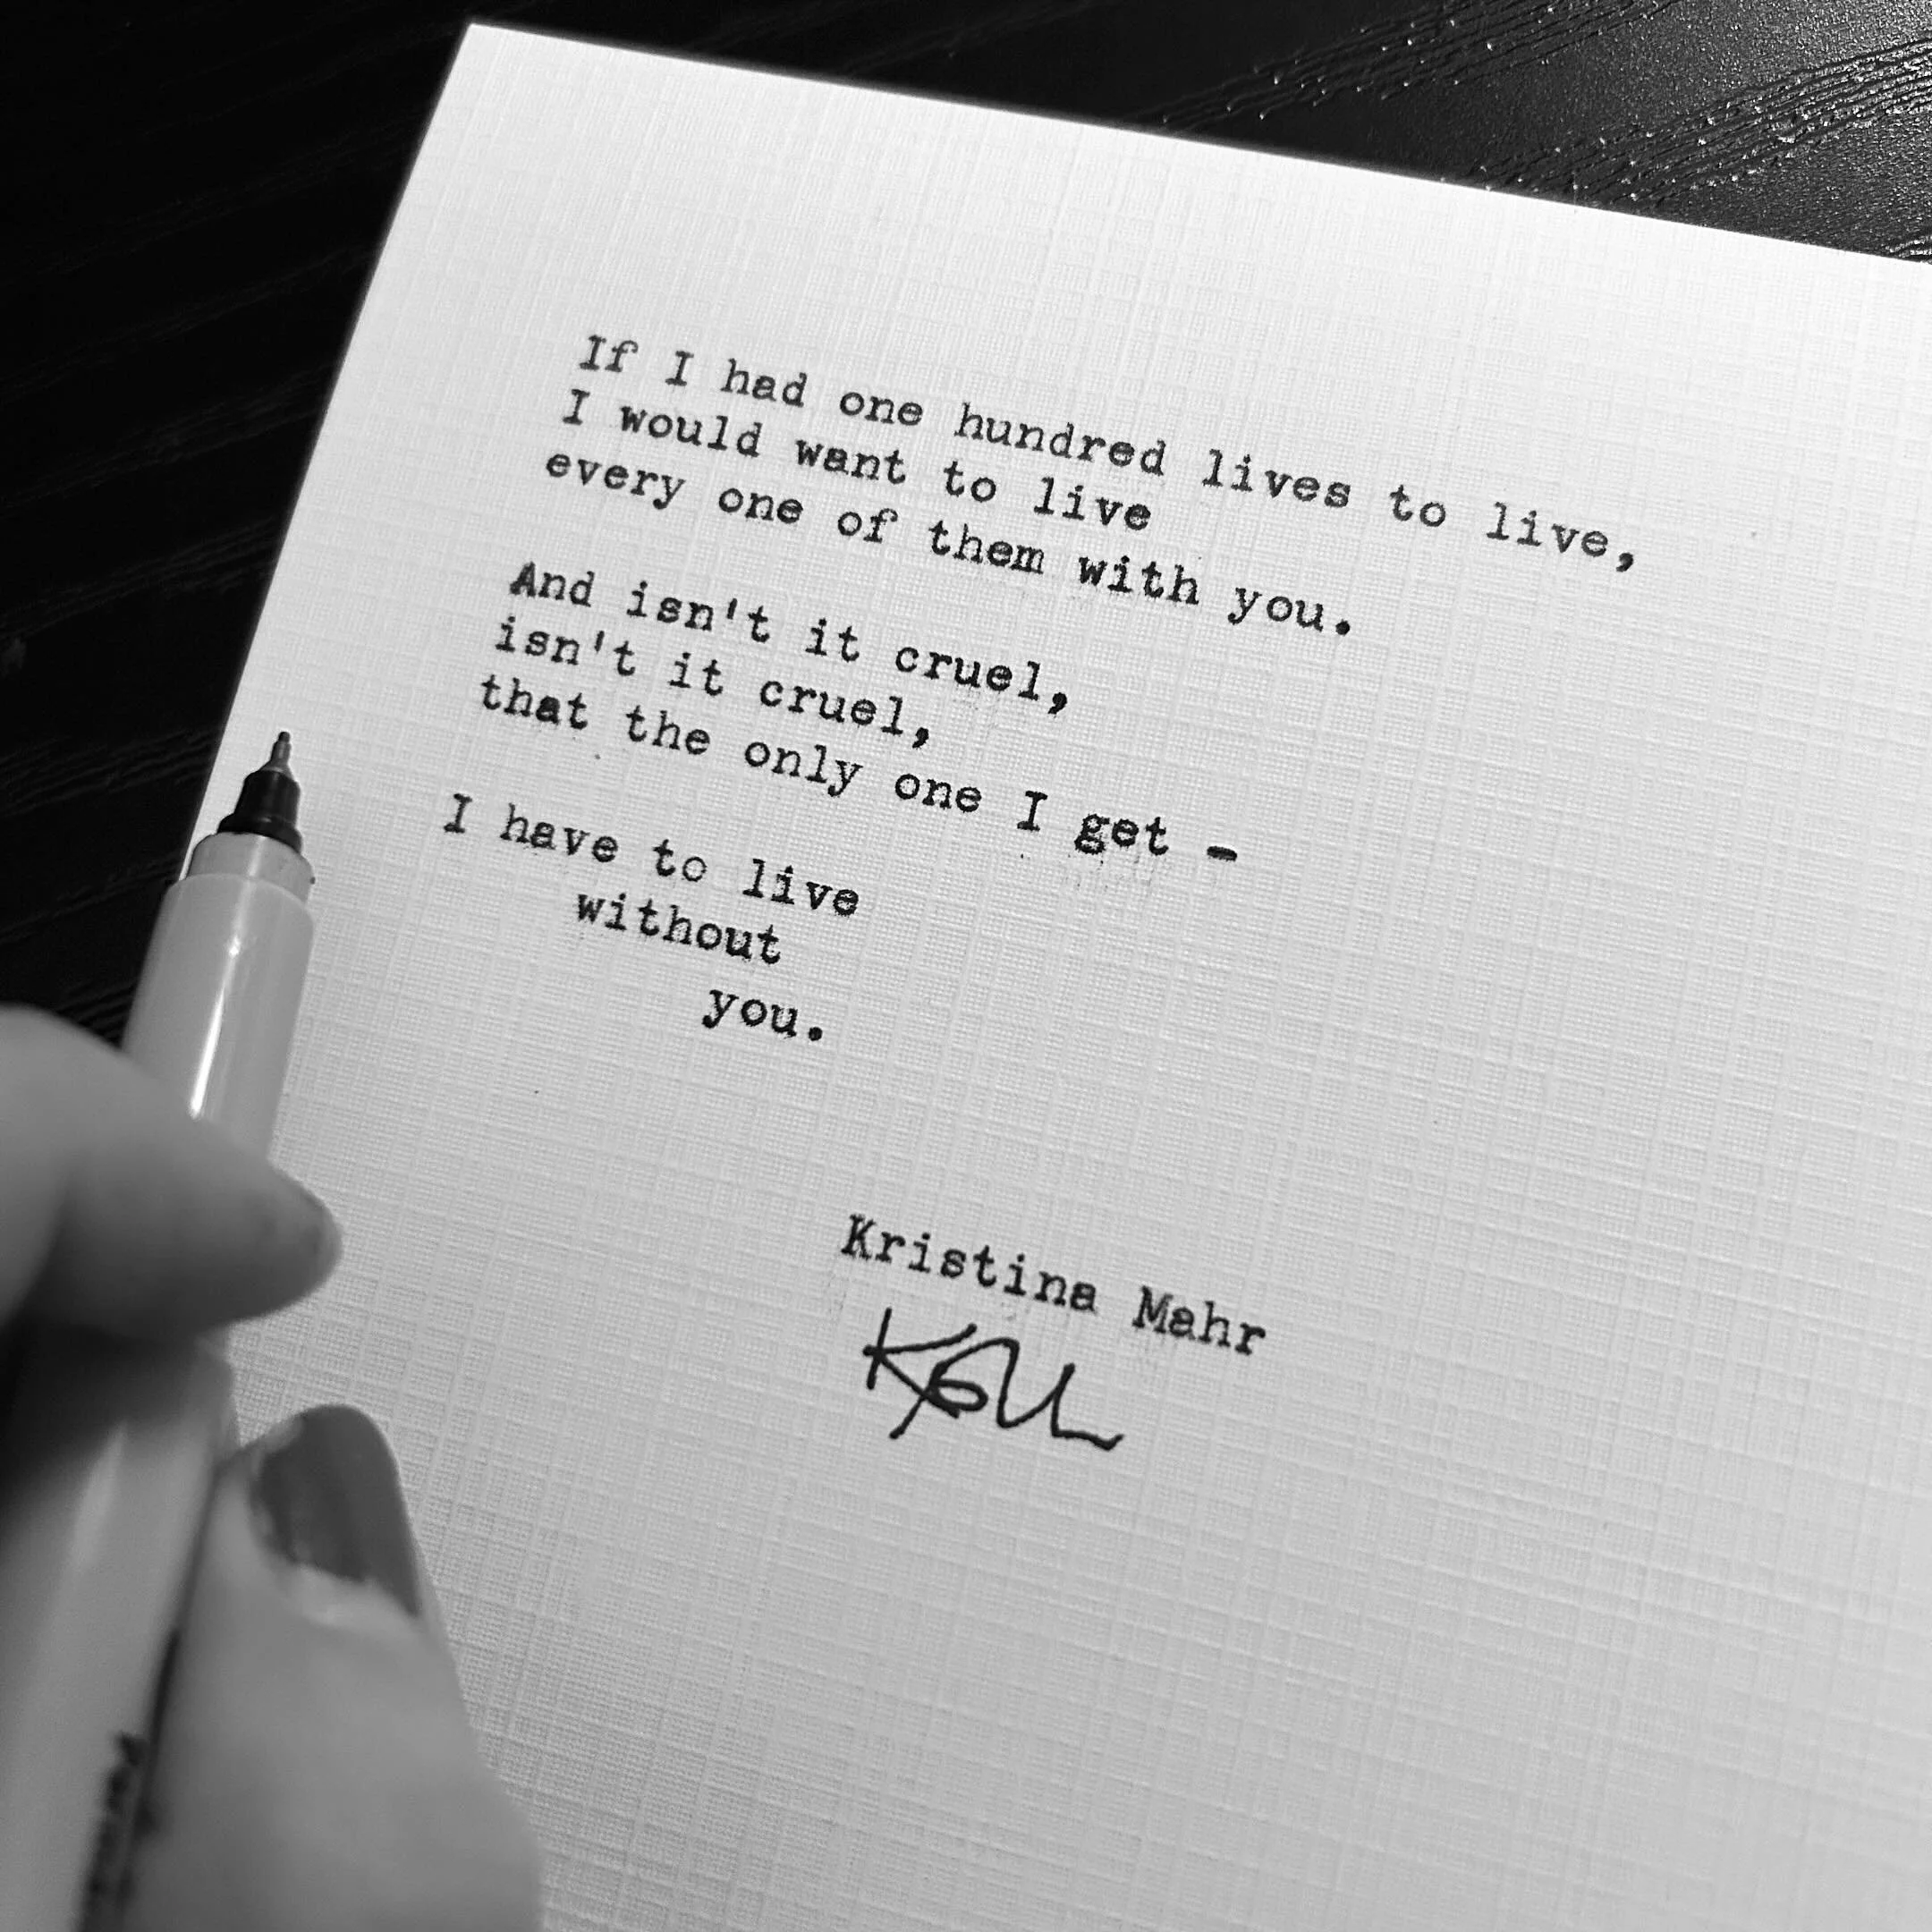 If I had one hundred lives to live,
I would want to live
every one of them with you.
And isn't it cruel,
isn't it cruel,
that the only one I get -
I have to live
without
you.
Kristina Mahr